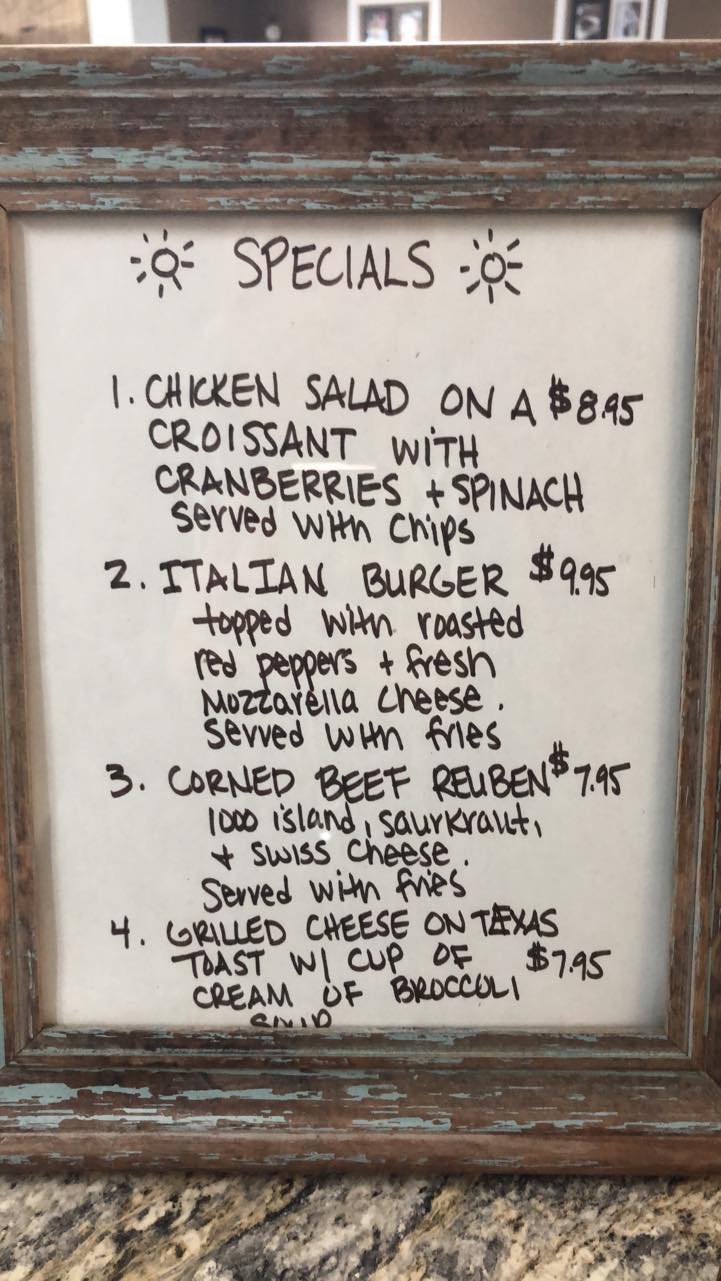 SPECIALS
1. CHICKEN SALAD ON A $8.95
CROISSANT WITH
CRANBERRIES + SPINACH
served with chips
2. ITALIAN BURGER $9.95
topped with roasted
red peppers + fresh
Mozzarella cheese.
Served with fries
3. CORNED BEEF REUBEN $7.95
1000 island, saurkraut,
+ swiss cheese.
Served with fries
4. GRILLED CHEESE ON TEXAS
TOAST W/ CUP OF $7.95
CREAM OF BROCCOLI